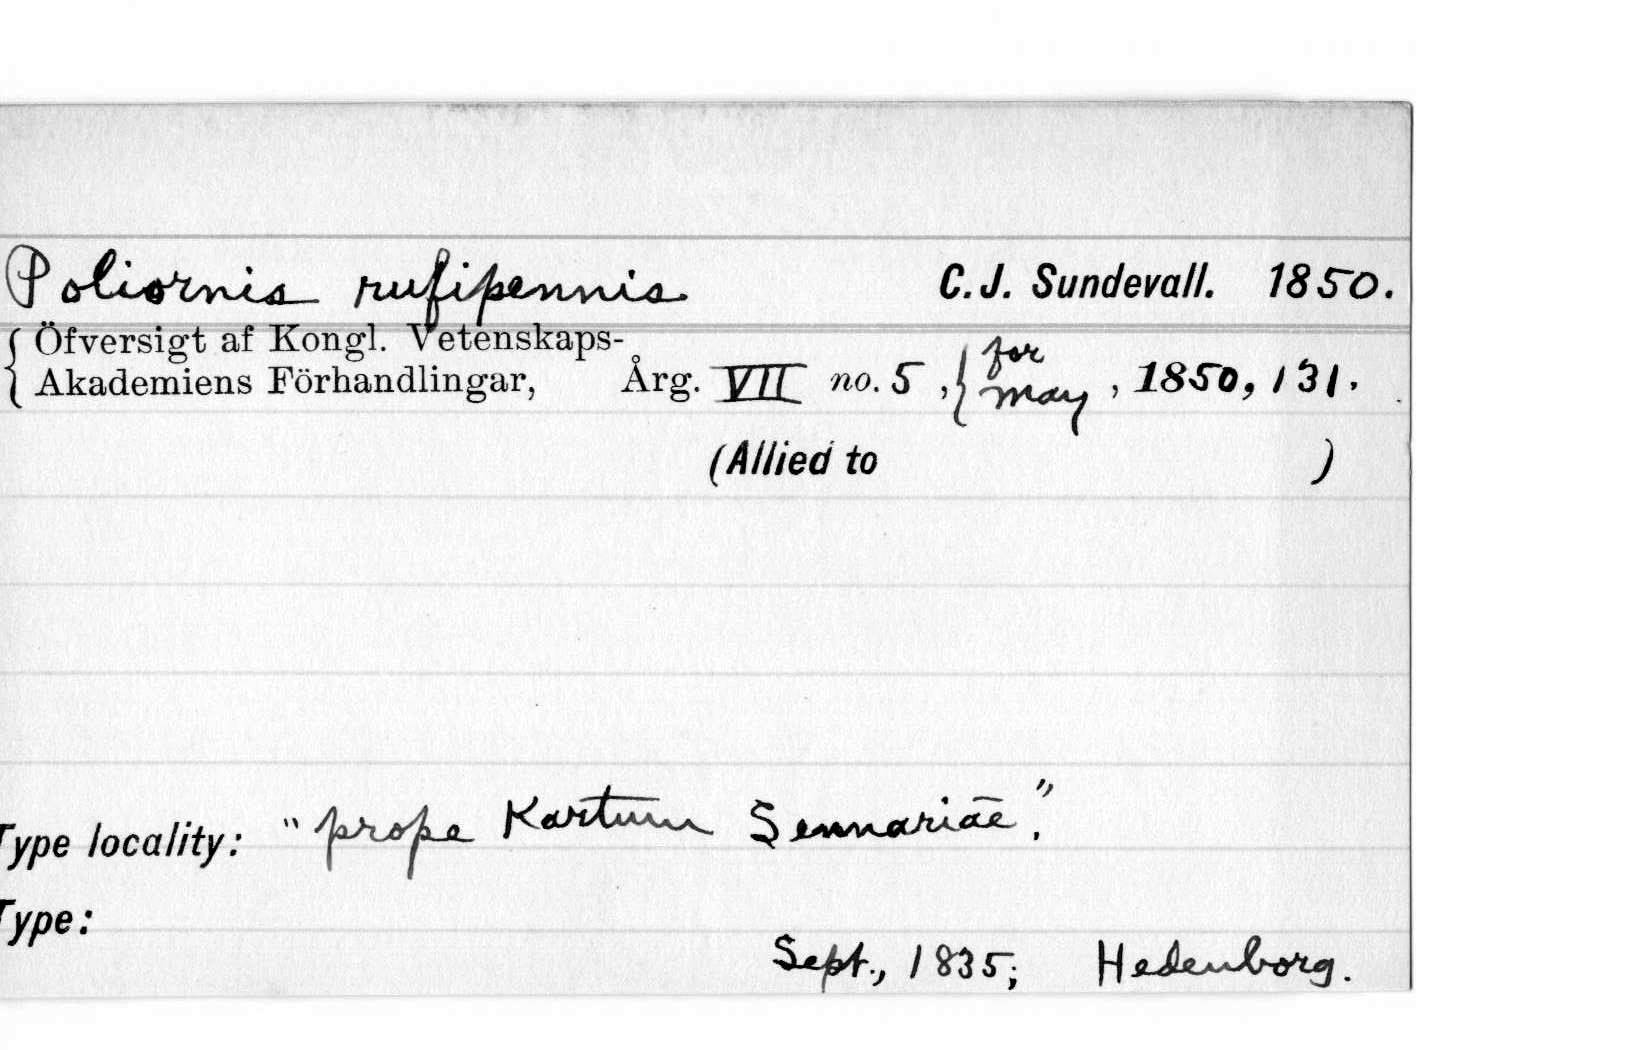 Poliornis rufipennis C. J. Sundevall. 1850.
{ Öfversigt af Kongl. Vetenskaps-
Akademiens Förhandlingar, Årg. VII no. 5, { for May, 1850, 131.
(Allied to )
Type locality: "prope Kartum Sennariae."
Type:
Sept., 1835; Hedenborg.